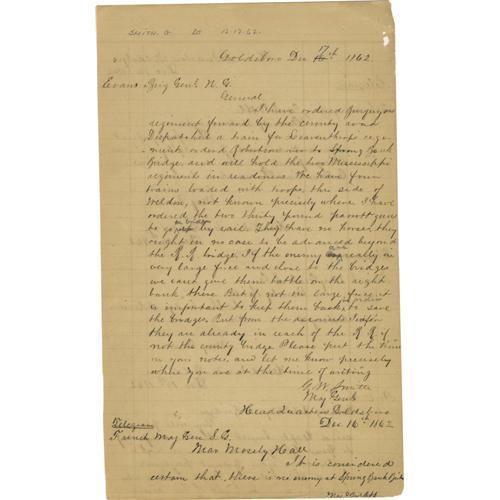 SMITH, G W 12-17-62
Goldsboro Dec 17th 1862
Evans Brig Genl N. G.
General
I have ordered
regiment forward by the county road
Dispatched a train for Leaventhorps regi-
ment ordered Robertson now to Spring Bank
Bridge and will hold the two Mississippi
regiments in readiness. We have four
trains loaded with troops, this side of
Weldon, not known precisely where I have
ordered the two thirty pound parrott guns
to go by rail. They have no horses, they
ought in no case to be advanced beyond
the R. R. bridge. If the enemy are really in
very large force and close to the bridges
we can give them battle on the right
bank, there. But if not in large force it
is important to keep them back in order to save
the bridges. But from the accounts I infer
they are already in reach of the R R if
not the county bridge. Please put the time
in your notes, and let me know precisely
where you are at the time of writing
G. W. Smith
Maj Genl
Headquarters Goldsboro
Dec 16th 1862
Telegram
French Maj Gen S. G.
Near Mosely Hall
It is considered
certain that there is no enemy at Spring Bank